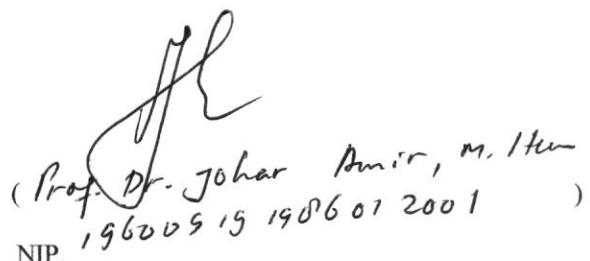 ( Prof. Dr. Johar Amir, M. Hum )
NIP. 19600519 198601 2001